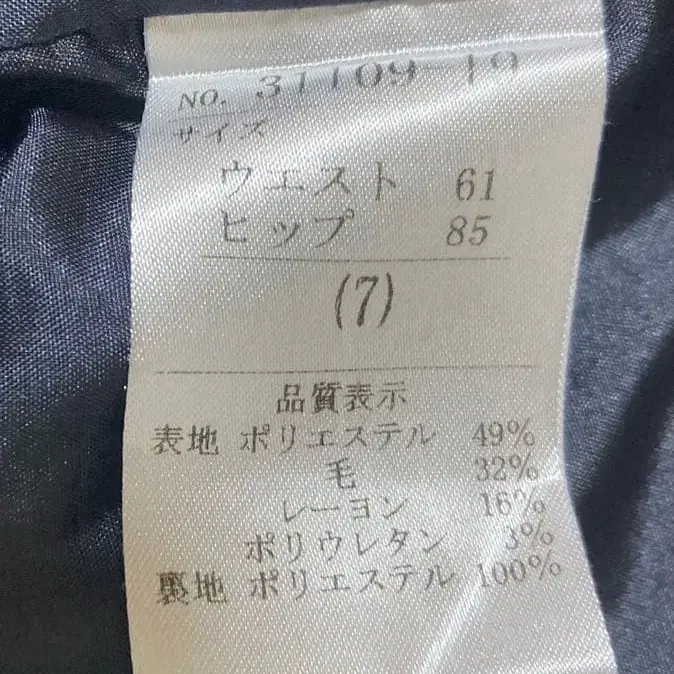 NO. 31109-19
サイズ
ウエスト 61
ヒップ 85
(7)
品質表示
表地 ポリエステル 49%
毛 32%
レーヨン 16%
ポリウレタン 3%
裏地 ポリエステル 100%